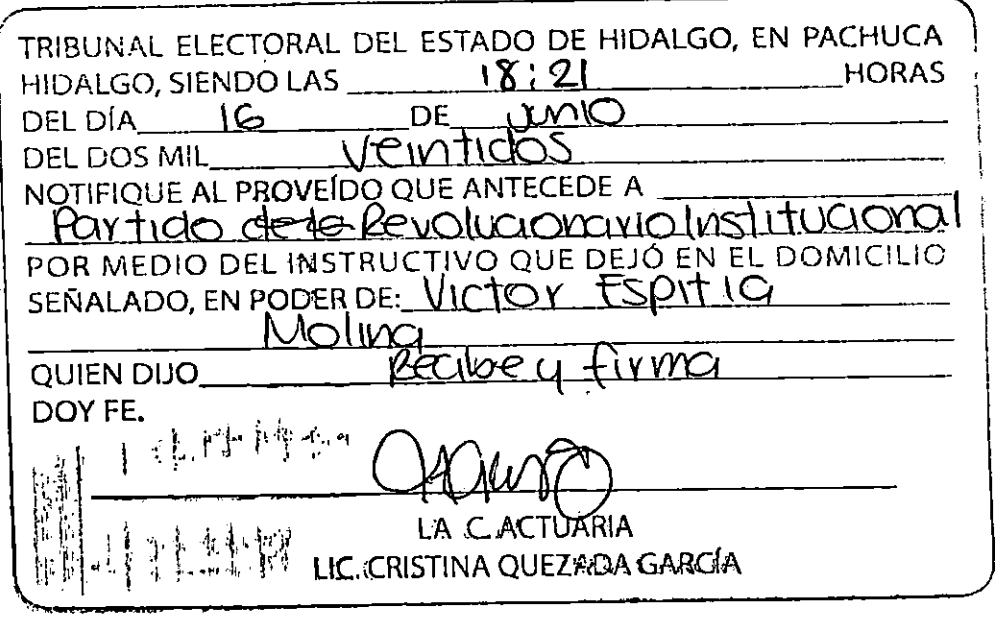 TRIBUNAL ELECTORAL DEL ESTADO DE HIDALGO, EN PACHUCA
HIDALGO, SIENDO LAS 18:21 HORAS
DEL DÍA 16 DE junio
DEL DOS MIL Veintidos
NOTIFIQUE AL PROVEÍDO QUE ANTECEDE A
Partido de la Revolucionario Institucional
POR MEDIO DEL INSTRUCTIVO QUE DEJÓ EN EL DOMICILIO
SEÑALADO, EN PODER DE: Victor Espitia
Molina
QUIEN DIJO Recibe y firma
DOY FE.
LA C. ACTUARIA
LIC. CRISTINA QUEZADA GARCÍA